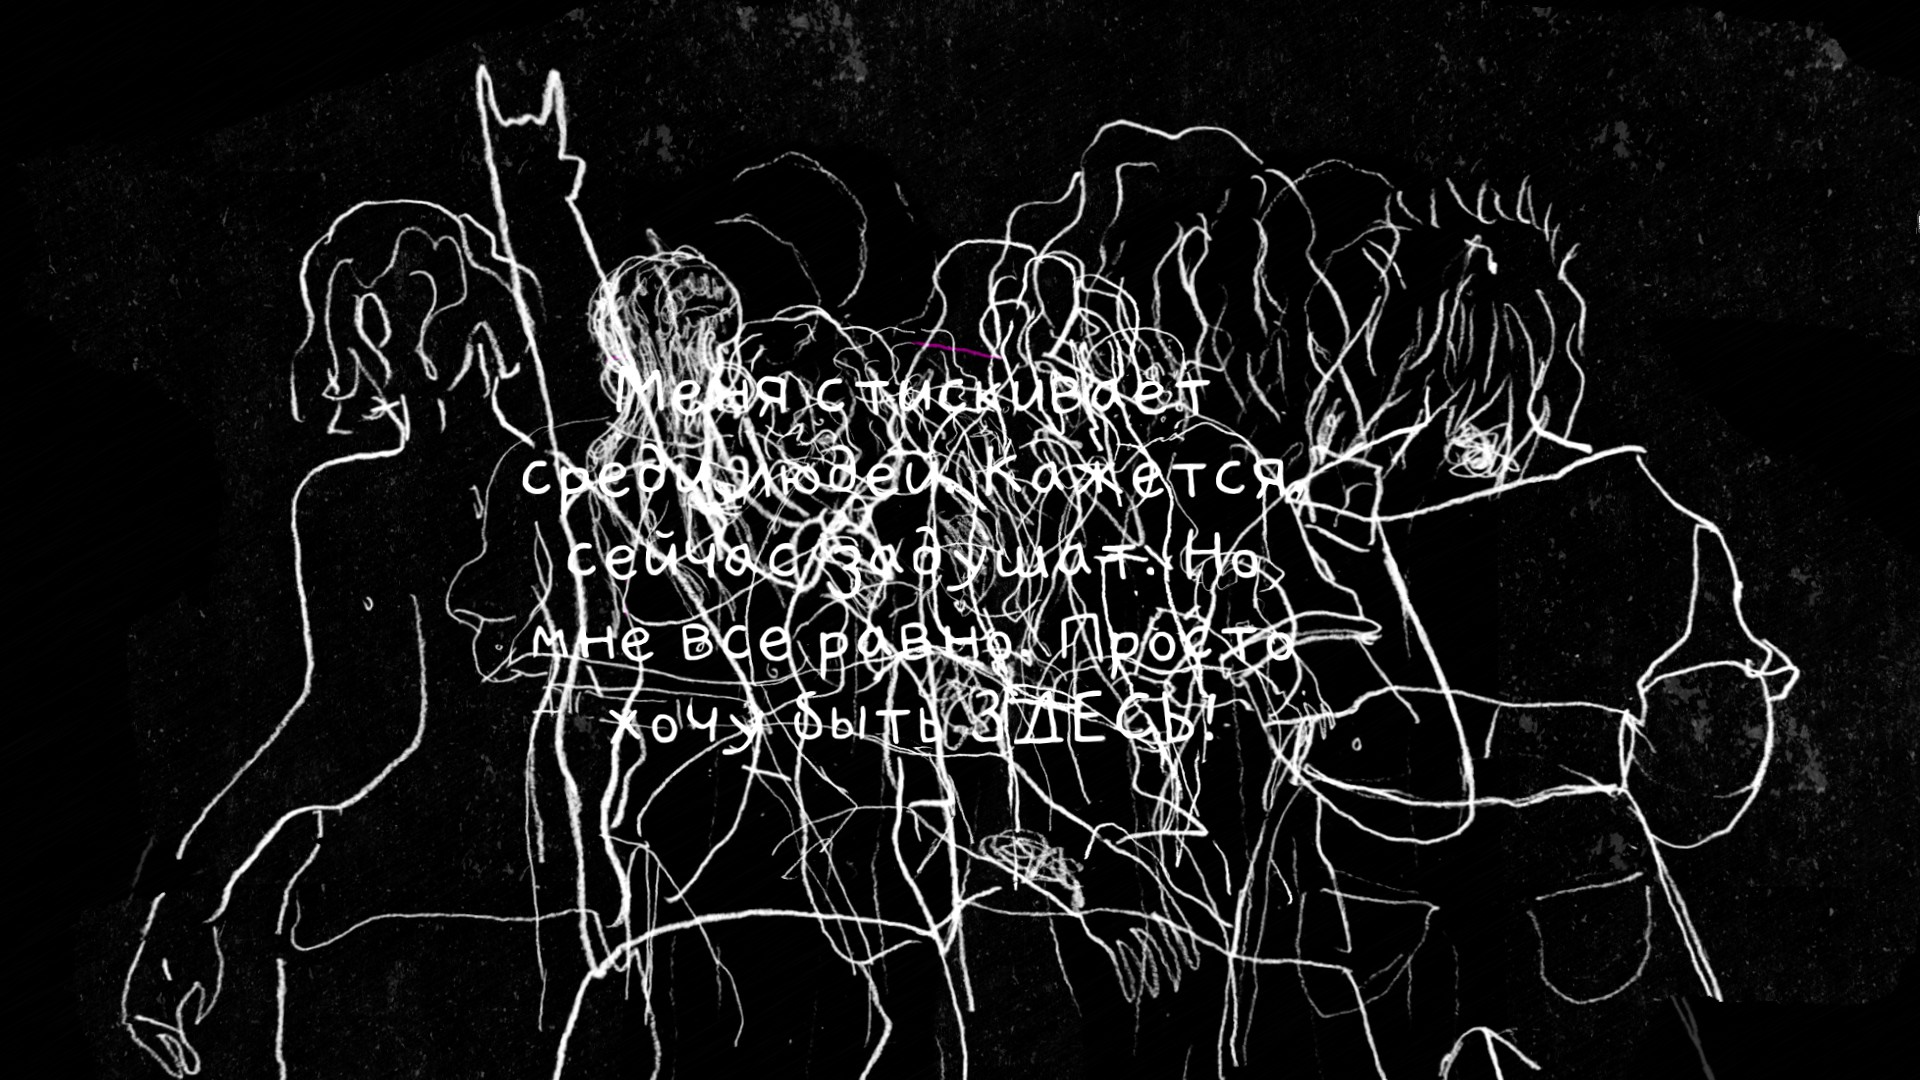 Меня стискивает
среди людей. Кажется,
сейчас задушат. Но
мне все равно. Просто
хочу быть ЗДЕСЬ!